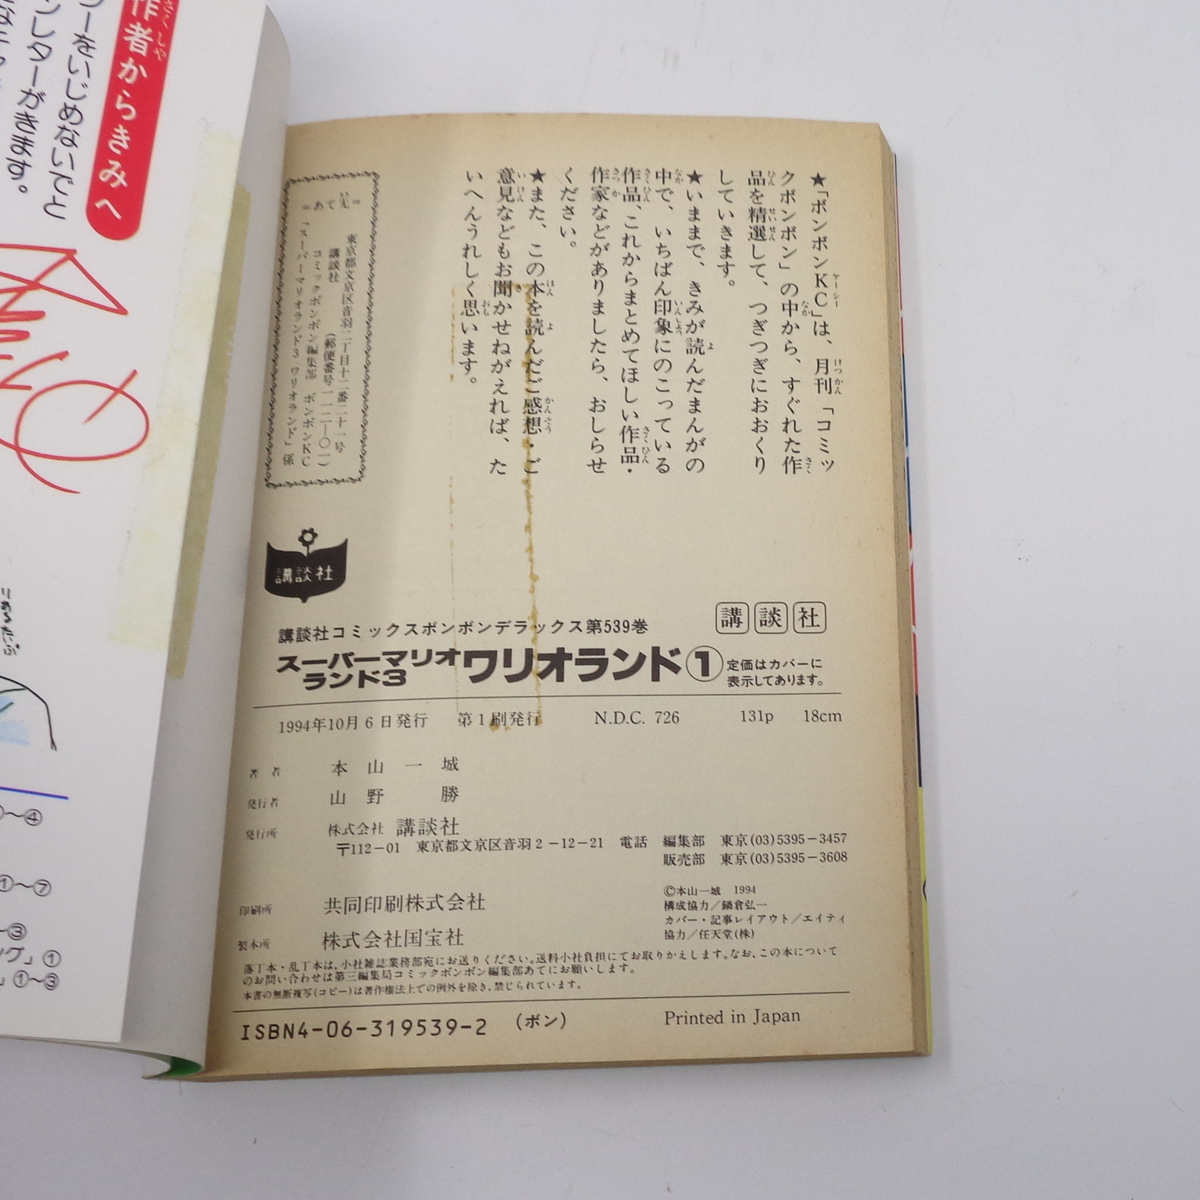 作者からきみへ
★「ボンボンKC」は、月刊「コミッ
クボンボン」の中から、すぐれた作
品を精選して、つぎつぎにおおくり
していきます。
★いままで、きみが読んだまんがの
中で、いちばん印象にのこっている
作品、これからまとめてほしい作品・
作家などがありましたら、おしらせ
ください。
★また、この本を読んだご感想・ご
意見などもお聞かせねがえれば、た
いへんうれしく思います。
=あて先=
東京都文京区音羽二丁目十二番二十一号
講談社 (郵便番号一一二-〇一)
コミックボンボン編集部 ボンボンKC
「スーパーマリオランド3 ワリオランド」係
講談社
講談社
講談社コミックスボンボンデラックス第539巻
スーパーマリオランド3 ワリオランド①
定価はカバーに
表示してあります。
1994年10月6日発行 第1刷発行 N.D.C. 726 131p 18cm
著者 本山一城
発行者 山野 勝
発行所 株式会社 講談社
〒112-01 東京都文京区音羽2-12-21 電話 編集部 東京(03)5395-3457
販売部 東京(03)5395-3608
印刷所 共同印刷株式会社
製本所 株式会社国宝社
©本山一城 1994
構成協力/鍋倉弘一
カバー・記事レイアウト/エイティ
協力/任天堂(株)
落丁本・乱丁本は、小社雑誌業務部宛にお送りください。送料小社負担にてお取りかえします。なお、この本について
のお問い合わせは第三編集局コミックボンボン編集部あてにお願いします。
本書の無断複写(コピー)は著作権法上での例外を除き、禁じられています。
ISBN4-06-319539-2 (ボン) Printed in Japan